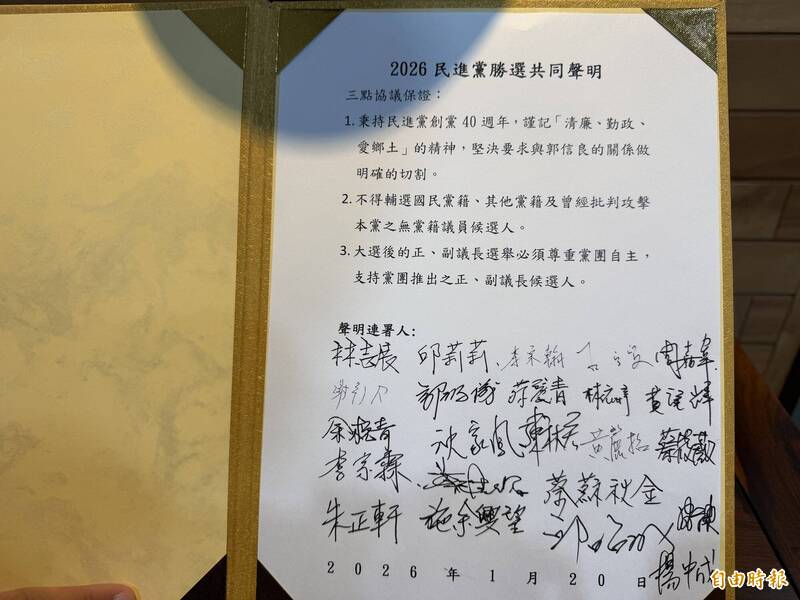 2026 民進黨勝選共同聲明
三點協議保證：
1. 秉持民進黨創黨 40 週年，謹記「清廉、勤政、
愛鄉土」的精神，堅決要求與郭信良的關係做
明確的切割。
2. 不得輔選國民黨籍、其他黨籍及曾經批判攻擊
本黨之無黨籍議員候選人。
3. 大選後的正、副議長選舉必須尊重黨團自主，
支持黨團推出之正、副議長候選人。
聲明連署人：
林志展 邱莉莉 周嘉韋
蔡筱薇
李宗霖 蔡蘇秋金
朱正軒 施余興望
2026 年 1 月 20 日
自由時報